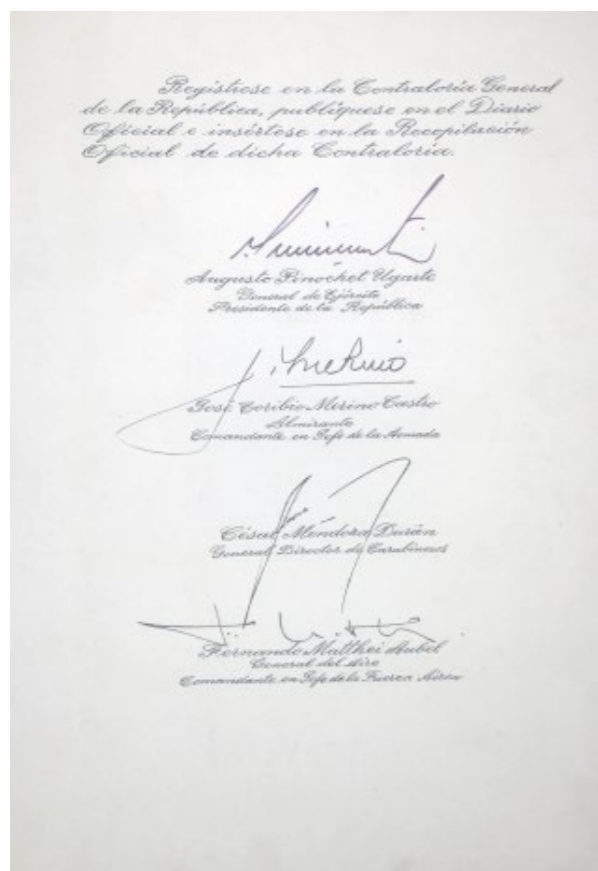 Regístrese en la Contraloría General
de la República, publíquese en el Diario
Oficial e insértese en la Recopilación
Oficial de dicha Contraloría.
Augusto Pinochet Ugarte
General de Ejército
Presidente de la República
J. T. Merino
José Toribio Merino Castro
Almirante
Comandante en Jefe de la Armada
César Mendoza Durán
General Director de Carabineros
Fernando Matthei Aubel
General del Aire
Comandante en Jefe de la Fuerza Aérea